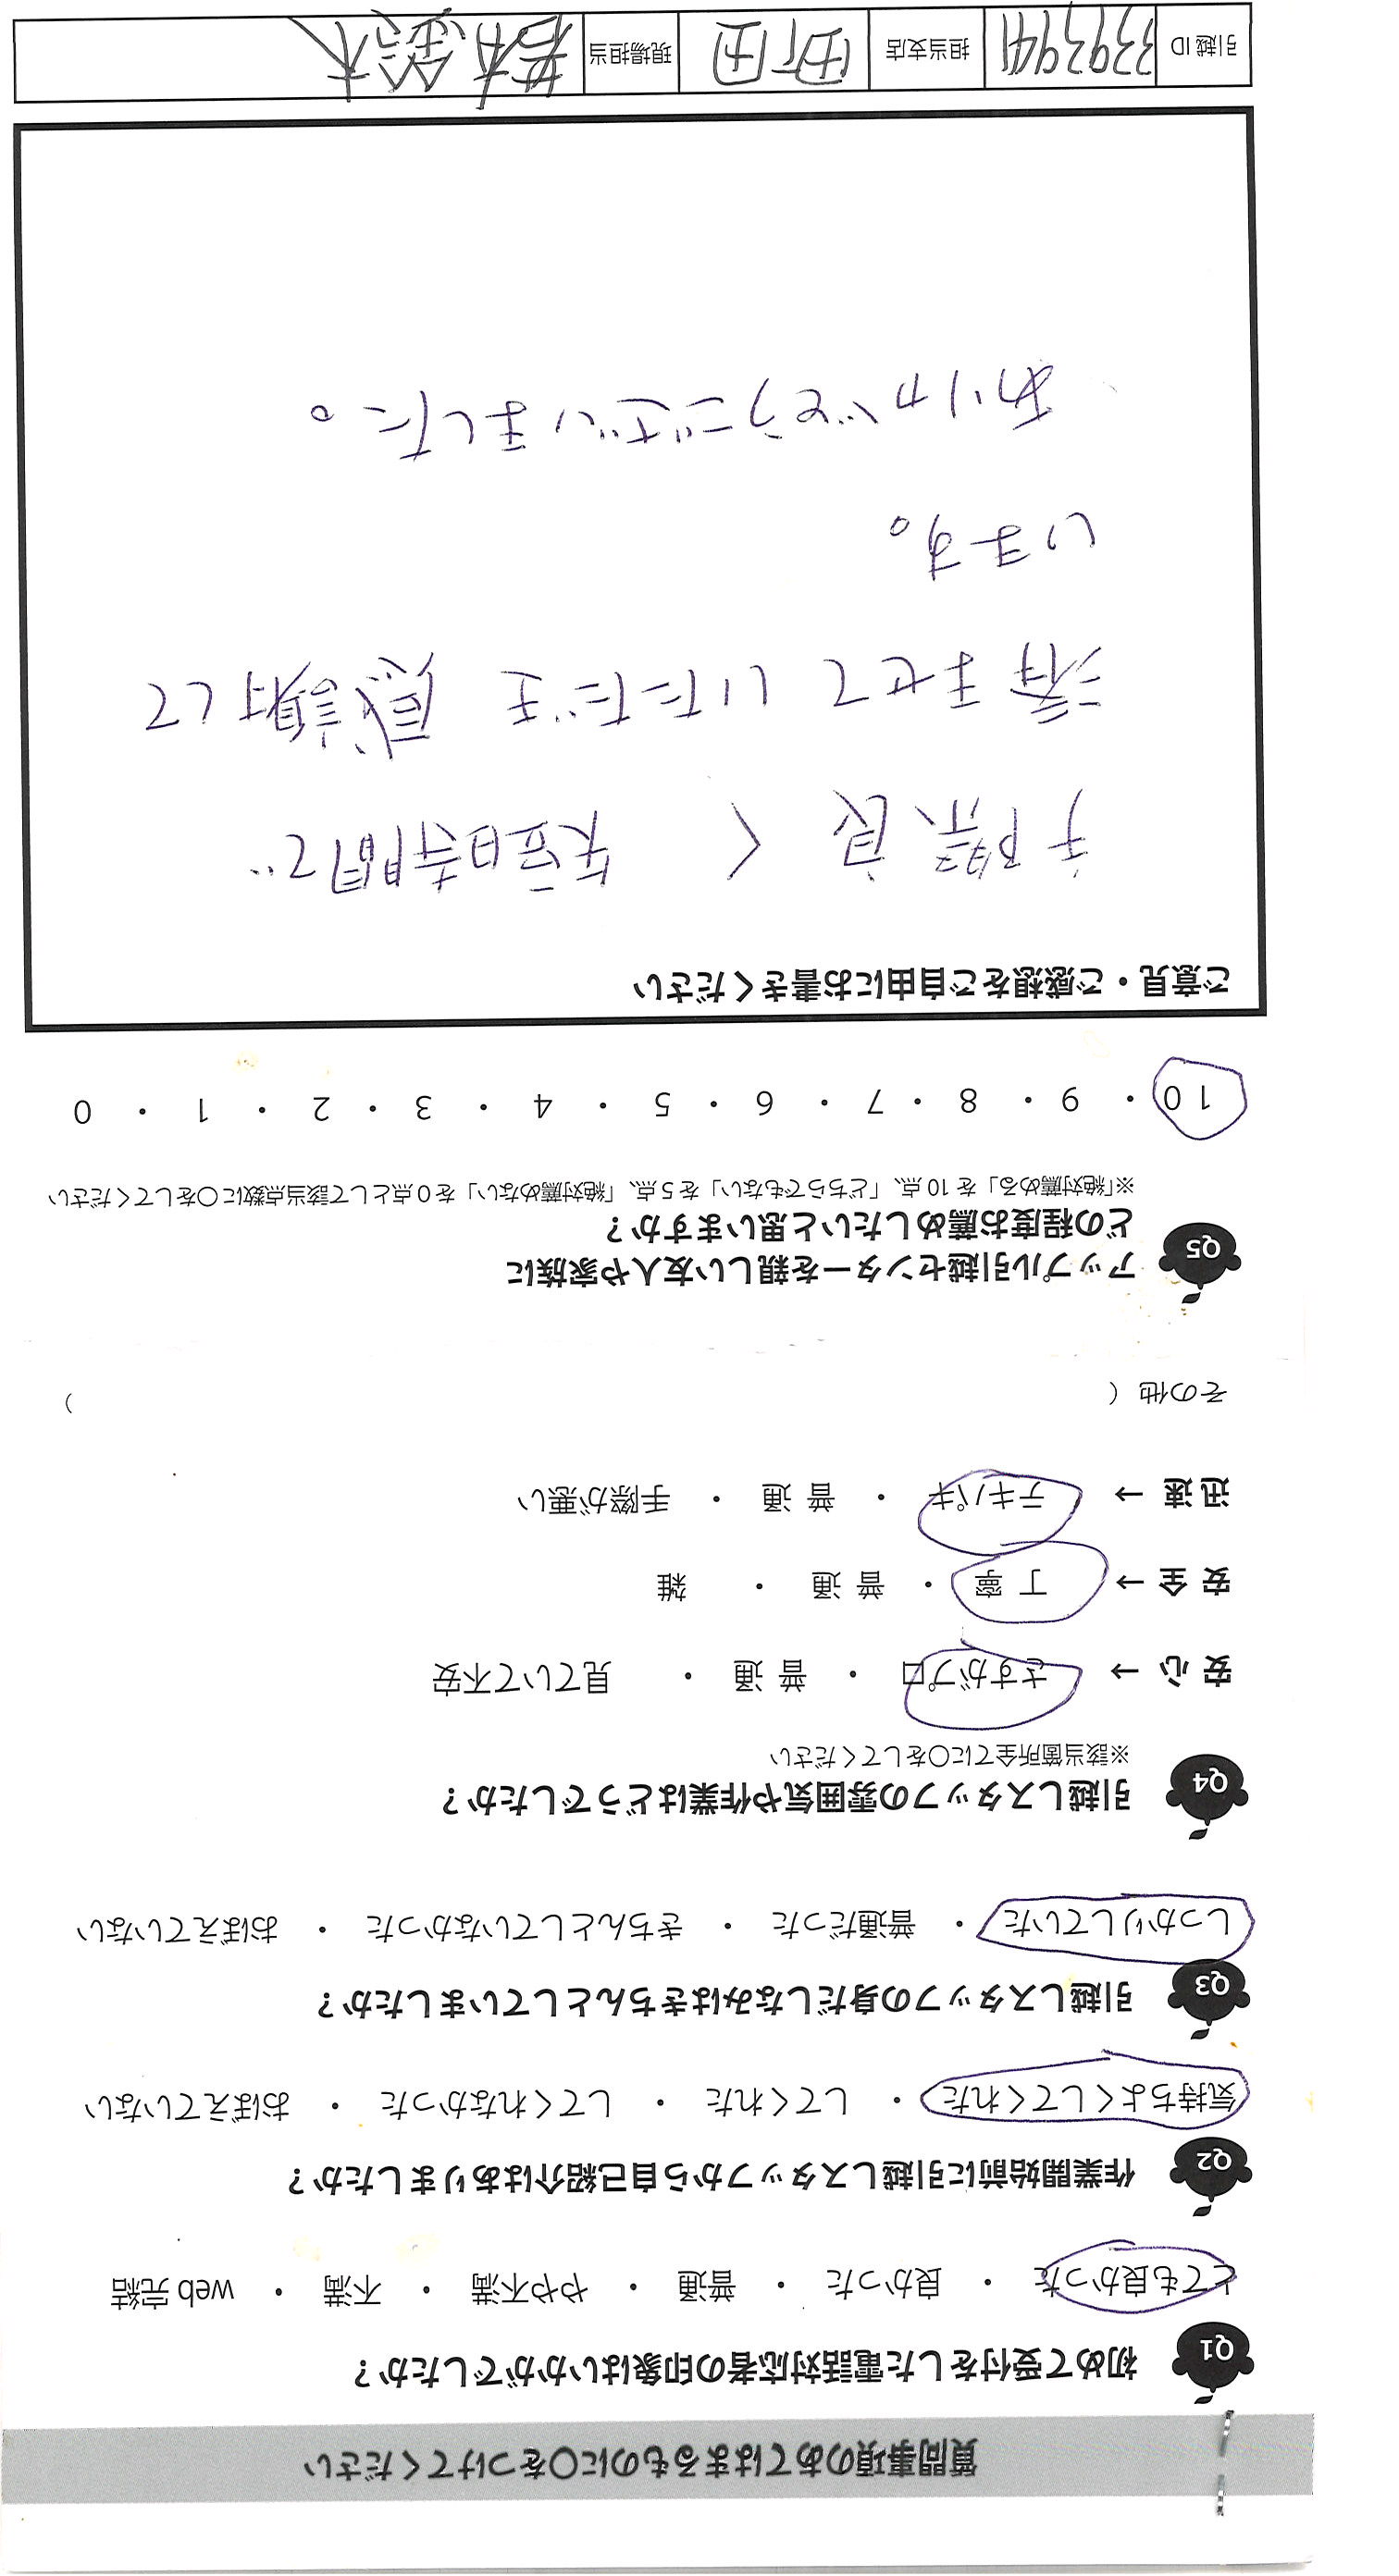 質問事項のあてはまるものに○をつけてください
Q1 初めて受付をした電話対応者の印象はいかがでしたか？
とても良かった ・ 良かった ・ 普通 ・ やや不満 ・ 不満 ・ web 完結
Q2 作業開始前に引越しスタッフから自己紹介はありましたか？
気持ちよくしてくれた ・ してくれた ・ してくれなかった ・ おぼえていない
Q3 引越しスタッフの身だしなみはきちんとしていましたか？
しっかりしていた ・ 普通だった ・ きちんとしていなかった ・ おぼえていない
Q4 引越しスタッフの雰囲気や作業はどうでしたか？
※該当箇所全てに○をしてください
安心 → さすがプロ ・ 普通 ・ 見ていて不安
安全 → 丁寧 ・ 普通 ・ 雑
迅速 → テキパキ ・ 普通 ・ 手際が悪い
その他 ( )
Q5 アップル引越センターを親しい友人や家族に
どの程度お薦めしたいと思いますか？
※「絶対薦める」を 10 点、「どちらでもない」を 5 点、「絶対薦めない」を 0 点として該当点数に○をしてください
10 ・ 9 ・ 8 ・ 7 ・ 6 ・ 5 ・ 4 ・ 3 ・ 2 ・ 1 ・ 0
ご意見・ご感想をご自由にお書きください
手際良く 短時間で
済ませていただき 感謝して
います。
ありがとうございました。
引越 ID 3393941 担当支店 町田 現場担当 鈴木